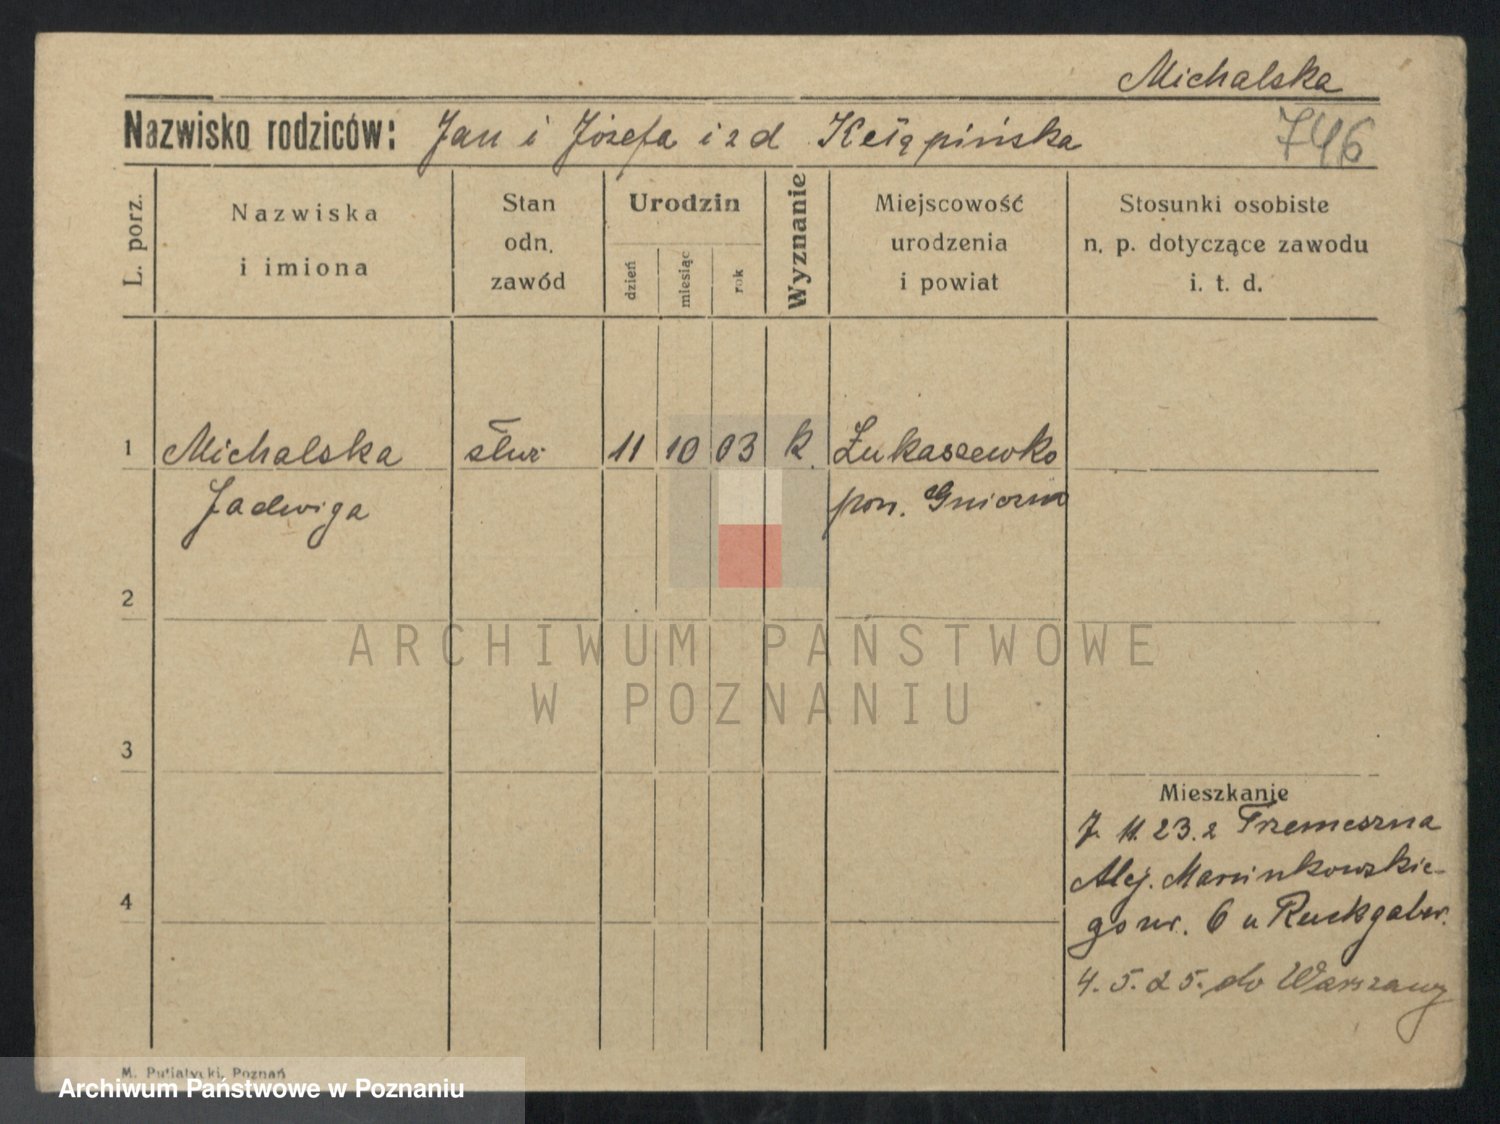 Michalska
Nazwisko rodziców: Jan i Józefa i z d Kełąpińska
746
L. porz.
Nazwiska
i imiona
Stan
odn.
zawód
Urodzin
dzień
miesiąc
rok
Wyznanie
Miejscowość
urodzenia
i powiat
Stosunki osobiste
n. p. dotyczące zawodu
i. t. d.
1 Michalska służ 11 10 03 k. Łukaszewko
Jadwiga pow. Gniezno
2
ARCHIWUM PAŃSTWOWE
W POZNANIU
3
Mieszkanie
7. 11. 23. z Trzemeszna
Alej. Marcinkowskie-
go nr. 6 u Ruckgaber.
4
4. 5. 25. do Warszawy
M. Putiatycki, Poznań
Archiwum Państwowe w Poznaniu